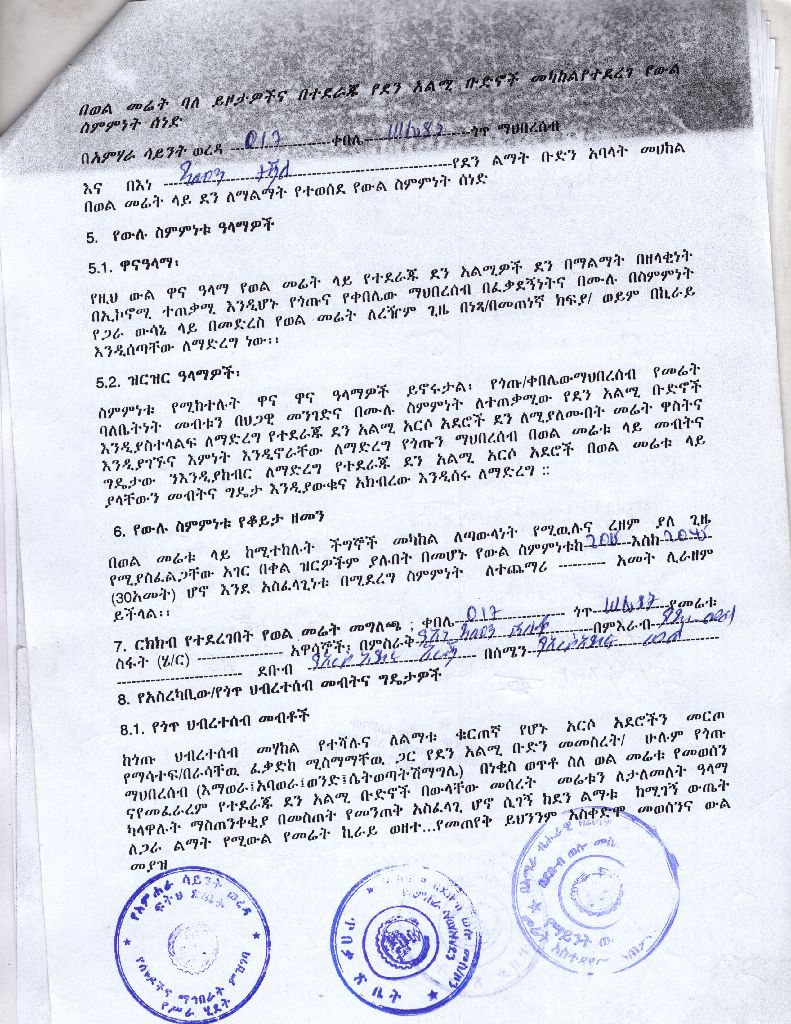 በወል መሬት ባለ ይዞታዎችና በተደራጁ የደን አልሚ ቡድኖች መካከልየተደረገ የውል
ስምምነት ሰነድ
በአምሃራ ሳይንት ወረዳ ---------------017----------ቀበሌ----------------ጎጥ ማህበረሰብ
እና በእነ ----------------------------------የደን ልማት ቡድን አባላት መሀከል
በወል መሬት ላይ ደን ለማልማት የተወሰደ የውል ስምምነት ሰነድ
5. የውሉ ስምምነቱ ዓላማዎች
5.1. ዋናዓላማ፡
የዚህ ውል ዋና ዓላማ የወል መሬት ላይ የተደራጁ ደን አልሚዎች ደን በማልማት በዘላቂነት
በኢኮኖሚ ተጠቃሚ እንዲሆኑ የጎጡና የቀበሌው ማህበረሰብ በፈቃደኝነትና በሙሉ በስምምነት
የጋራ ውሳኔ ላይ በመድረስ የወል መሬት ለረዥም ጊዜ በነጻ/በመጠነኛ ክፍያ/ ወይም በኪራይ
እንዲሰጣቸው ለማድረግ ነው፡፡
5.2. ዝርዝር ዓላማዎች፡
ስምምነቱ የሚከተሉት ዋና ዋና ዓላማዎች ይኖሩታል፡ የጎጡ/ቀበሌውማህበረሰብ የመሬት
ባለቤትነት መብቱን በህጋዊ መንገድና በሙሉ ስምምነት ለተጠቃሚው የደን አልሚ ቡድኖች
እንዲያስተላልፍ ለማድረግ የተደራጁ ደን አልሚ አርሶ አደሮች ደን ለሚያለሙበት መሬት ዋስትና
እንዲያገኙና እምነት እንዲኖራቸው ለማድረግ የጎጡን ማህበረሰብ በወል መሬቱ ላይ መብትና
ግዴታው ንእንዲያከብር ለማድረግ የተደራጁ ደን አልሚ አርሶ አደሮች በወል መሬቱ ላይ
ያላቸውን መብትና ግዴታ እንዲያውቁና አክብረው እንዲሰሩ ለማድረግ ::
6. የውሉ ስምምነቱ የቆይታ ዘመን
በወል መሬቱ ላይ ከሚተከሉት ችግኞች መካከል ለጣውላነት የሚዉሉና ረዘም ያለ ጊዜ
የሚያስፈልጋቸው አገር በቀል ዝርዎችም ያሉበት በመሆኑ የውል ስምምነቱከ-------እስከ-------
(30አመት) ሆኖ እንደ አስፈላጊነቱ በሚደረግ ስምምነት ለተጨማሪ --------- አመት ሊራዘም
ይችላል፡፡
7. ርክክብ የተደረገበት የወል መሬት መግለጫ : ቀበሌ--017-------------- ጎጥ------------የመሬቱ
ስፋት (ሄ/ር) ---------------- አዋሳኞች፡ በምስራቅ------------------በምእራብ-----------
------------------------- ደቡብ ---------------------- በሰሜን-----------------------------
8. የአስረካቢው/የጎጥ ህብረተሰብ መብትና ግዴታዎች
8.1. የጎጥ ህብረተሰብ መብቶች
ከጎጡ ህብረተሰብ መሃከል የተሻሉና ለልማቱ ቁርጠኛ የሆኑ አርሶ አደሮችን መርጦ
የማሳተፍ/በራሳቸዉ ፈቃድከ ሚስማማቸዉ ጋር የደን አልሚ ቡድን መመስረት/ ሁሉም የጎጡ
ማህበረሰብ (እማወራ፤አባወራ፤ወንድ፤ሴትወጣት፣ሽማግሌ) በነቂስ ወጥቶ ስለ ወል መሬቱ የመወሰን
ናየመፈራረም የተደራጁ ደን አልሚ ቡድኖች በውላቸው መሰረት መሬቱን ለታለመለት ዓላማ
ካላዋሉት ማስጠንቀቂያ በመስጠት የመንጠቅ አስፈላጊ ሆኖ ሲገኝ ከደን ልማቱ ከሚገኝ ውጤት
ለጋራ ልማት የሚውል የመሬት ኪራይ ወዘተ...የመጠየቅ ይህንንም አስቀድሞ መወሰንና ውል
መያዝ
የአምሐራ ሳይንት ወረዳ
ፍትህ ጽ/ቤት
የሰነዶችና ማኅበራት ምዝገባ
የሥራ ሂደት
ጽ ቤት